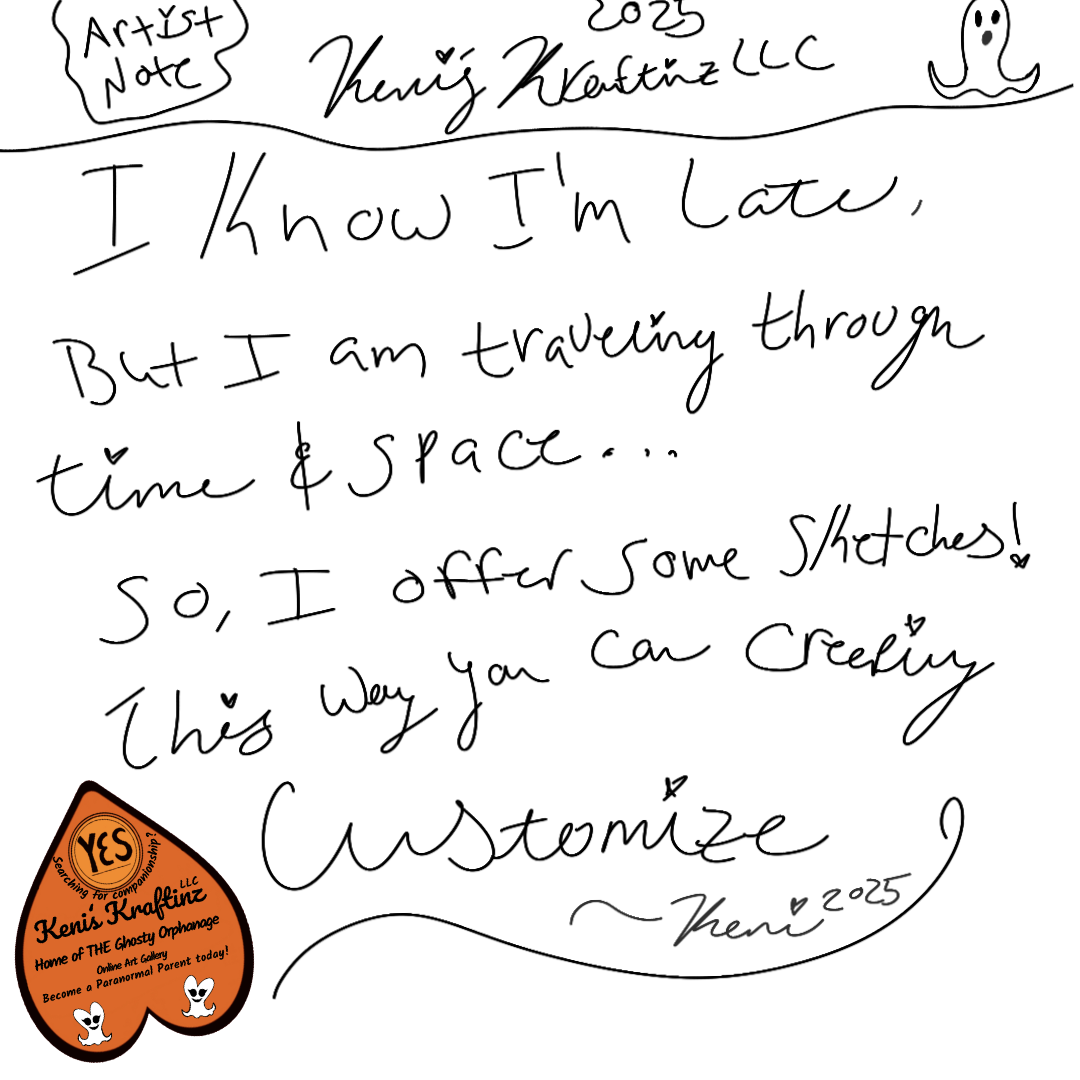 Artist
Note
2025
Keni's Kraftinz LLC
I Know I'm Late,
But I am traveling through
time & space...
So, I offer some sketches!
This way you can creeping
Customize
~Keni 2025
YES
Searching for companionship?
Keni's Kraftinz LLC
Home of THE Ghosty Orphanage
Online Art Gallery
Become a Paranormal Parent today!